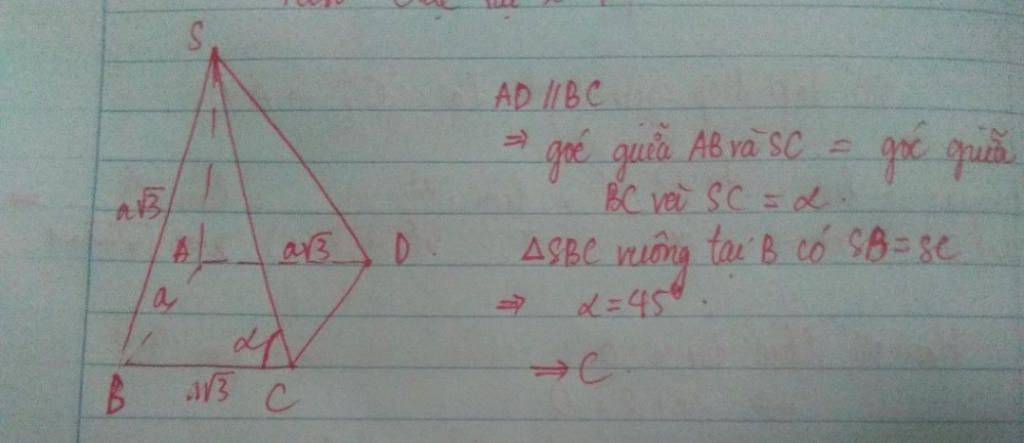 S
a√3
A
a√3
D
a
α
B
a√3
C
AD // BC
⇒ góc giữa AB và SC = góc giữa
BC và SC = α.
ΔSBC vuông tại B có SB = SC
⇒ α = 45°.
⇒ C